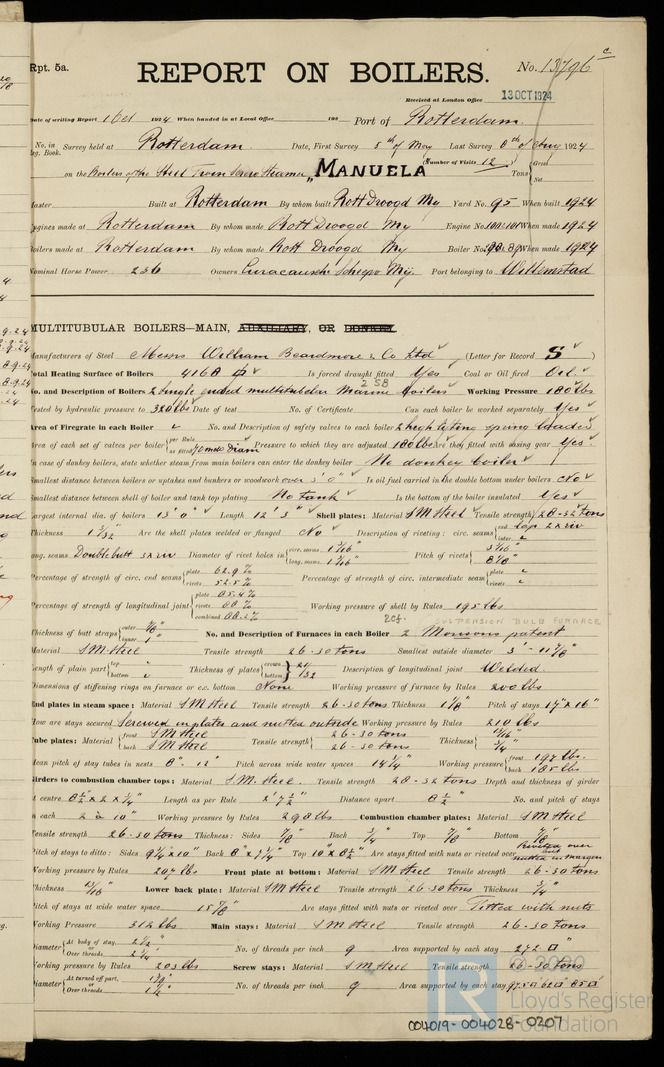 Rpt. 5a.
REPORT ON BOILERS.
No. 13796
Received at London Office 13 OCT 1924
Date of writing Report 1 Oct 1924 When handed in at Local Office 192 Port of Rotterdam
No. in Reg. Book. Survey held at Rotterdam Date, First Survey 5th of May Last Survey 1924
on the Boilers of the Steel Twin Screw Steamer "MANUELA" (Number of Visits 12) Tons Gross Net
Master Built at Rotterdam By whom built Rott Droogd My Yard No. 95 When built 1924
Engines made at Rotterdam By whom made Rott Droogd My Engine No. When made 1924
Boilers made at Rotterdam By whom made Rott Droogd My Boiler No. When made 1924
Nominal Horse Power 236 Owners Curacaosche Scheepv Mij. Port belonging to Willemstad
MULTITUBULAR BOILERS—MAIN, AUXILIARY, OR DONKEY.
Manufacturers of Steel Messrs William Beardmore & Co Ltd (Letter for Record S)
Total Heating Surface of Boilers 4168 Is forced draught fitted Yes Coal or Oil fired Oil
No. and Description of Boilers 2 Single ended multitubular Marine boilers Working Pressure 180 lbs
Tested by hydraulic pressure to 320 lbs Date of test No. of Certificate 258 Can each boiler be worked separately Yes
Area of Firegrate in each Boiler No. and Description of safety valves to each boiler 2 high lifting spring loaded
Area of each set of valves per boiler per Rule as fitted 70 m/m Diam Pressure to which they are adjusted 180 lbs Are they fitted with easing gear Yes
In case of donkey boilers, state whether steam from main boilers can enter the donkey boiler No donkey boiler
Smallest distance between boilers or uptakes and bunkers or woodwork over 3' 0" Is oil fuel carried in the double bottom under boilers No
Smallest distance between shell of boiler and tank top plating No tank Is the bottom of the boiler insulated Yes
Largest internal dia. of boilers 13' 0" Length 12' 3" Shell plates: Material S M Steel Tensile strength 28-32 tons
Thickness 1 1/32" Are the shell plates welded or flanged No Description of riveting: circ. seams end lap 2 x riv inter.
long. seams Double butt 3 x riv Diameter of rivet holes in circ. seams 1 3/16" long. seams 1 3/16" Pitch of rivets
Percentage of strength of circ. end seams plate 62.9 % rivets 52.5 % Percentage of strength of circ. intermediate seam plate rivets
Percentage of strength of longitudinal joint plate 85.4 % rivets combined Working pressure of shell by Rules 195 lbs
SUSPENSION BULB FURNACE
Thickness of butt straps outer inner 1" No. and Description of Furnaces in each Boiler 2 Morisons patent
Material S M Steel Tensile strength 26-30 tons Smallest outside diameter 3' - 11 7/8"
Length of plain part top bottom Thickness of plates crown bottom 21/32 Description of longitudinal joint Welded
Dimensions of stiffening rings on furnace or c.c. bottom None Working pressure of furnace by Rules 200 lbs
End plates in steam space: Material S M Steel Tensile strength 26-30 tons Thickness 1 1/8" Pitch of stays 17" x 16"
How are stays secured Screwed in plates and nutted outside Working pressure by Rules 210 lbs
Tube plates: Material front S M Steel back S M Steel Tensile strength 26-30 tons 26-30 tons Thickness 13/16" 3/4"
Mean pitch of stay tubes in nests 8" - 12" Pitch across wide water spaces 14 1/4" Working pressure front 197 lbs. back 185 lbs
Girders to combustion chamber tops: Material S.M. Steel Tensile strength 28-32 tons Depth and thickness of girder
at centre 8 1/2" x 2 x 3/4" Length as per Rule 2' 7 1/2" Distance apart 8 1/2" No. and pitch of stays
in each 2 à 10" Working pressure by Rules 290 lbs Combustion chamber plates: Material S M Steel
Tensile strength 26-30 tons Thickness: Sides Back 3/4" Top Bottom
Pitch of stays to ditto: Sides 9 1/4" x 10" Back 8" x 7 3/4" Top 10" x 8 1/2" Are stays fitted with nuts or riveted over Riveted over nutted in margin
Working pressure by Rules 207 lbs Front plate at bottom: Material S M Steel Tensile strength 26-30 tons
Thickness 13/16" Lower back plate: Material S M Steel Tensile strength 26-30 tons Thickness 3/4"
Pitch of stays at wide water space 15 7/8" Are stays fitted with nuts or riveted over Fitted with nuts
Working Pressure 312 lbs Main stays: Material S M Steel Tensile strength 26-30 tons
Diameter At body of stay, or Over threads 2 1/2" 2 3/4" No. of threads per inch 9 Area supported by each stay 272 □"
Working pressure by Rules 203 lbs Screw stays: Material S M Steel Tensile strength 26-30 tons
Diameter At turned off part, or Over threads 1 1/2" No. of threads per inch 9 Area supported by each stay
© 2020
LR Lloyd's Register Foundation
004019-004028-0207